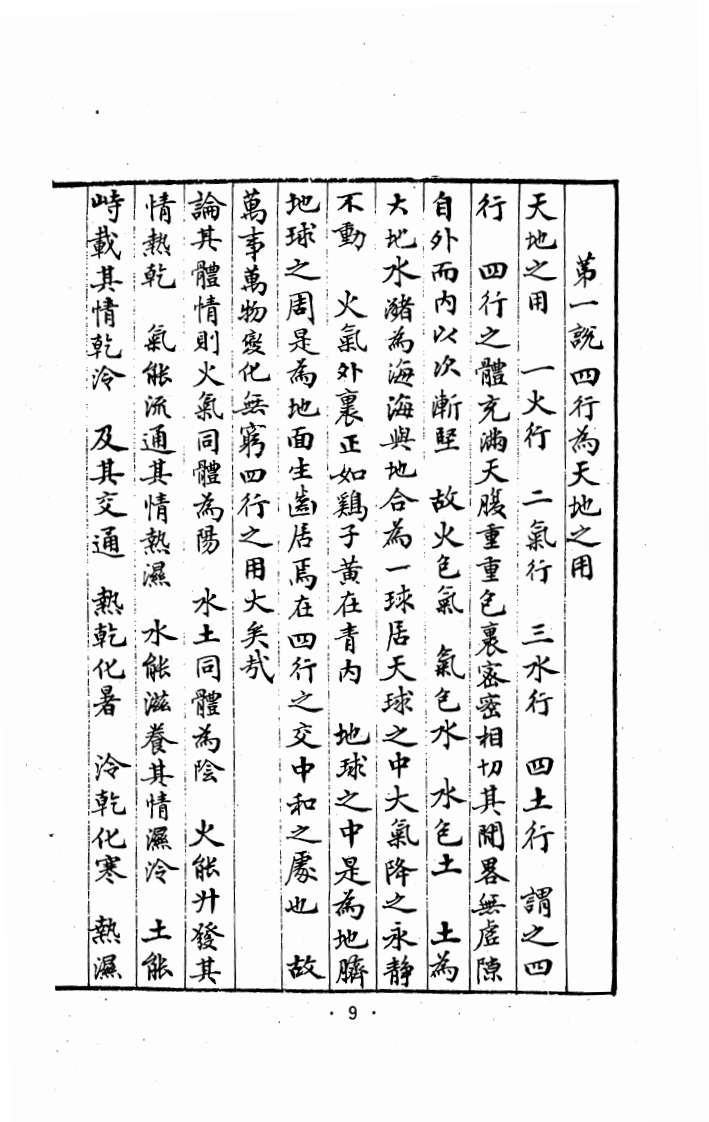 第一說四行為天地之用
天地之用 一火行 二氣行 三水行 四土行 謂之四
行 四行之體充滿天腹重重包裏密密相切其間畧無虛隙
自外而內以次漸堅 故火包氣 氣包水 水包土 土為
大地水瀦為海海與地合為一球居天球之中大氣降之永静
不動 火氣外裏正如鷄子黃在青内 地球之中是為地臍
地球之周是為地面生齒居焉在四行之交中和之處也 故
萬事萬物變化無窮四行之用大矣哉
論其體情則火氣同體為陽 水土同體為陰 火能升發其
情熱乾 氣能流通其情熱濕 水能滋養其情濕冷 土能
峙載其情乾冷 及其交通 熱乾化暑 冷乾化寒 熱濕
· 9 ·